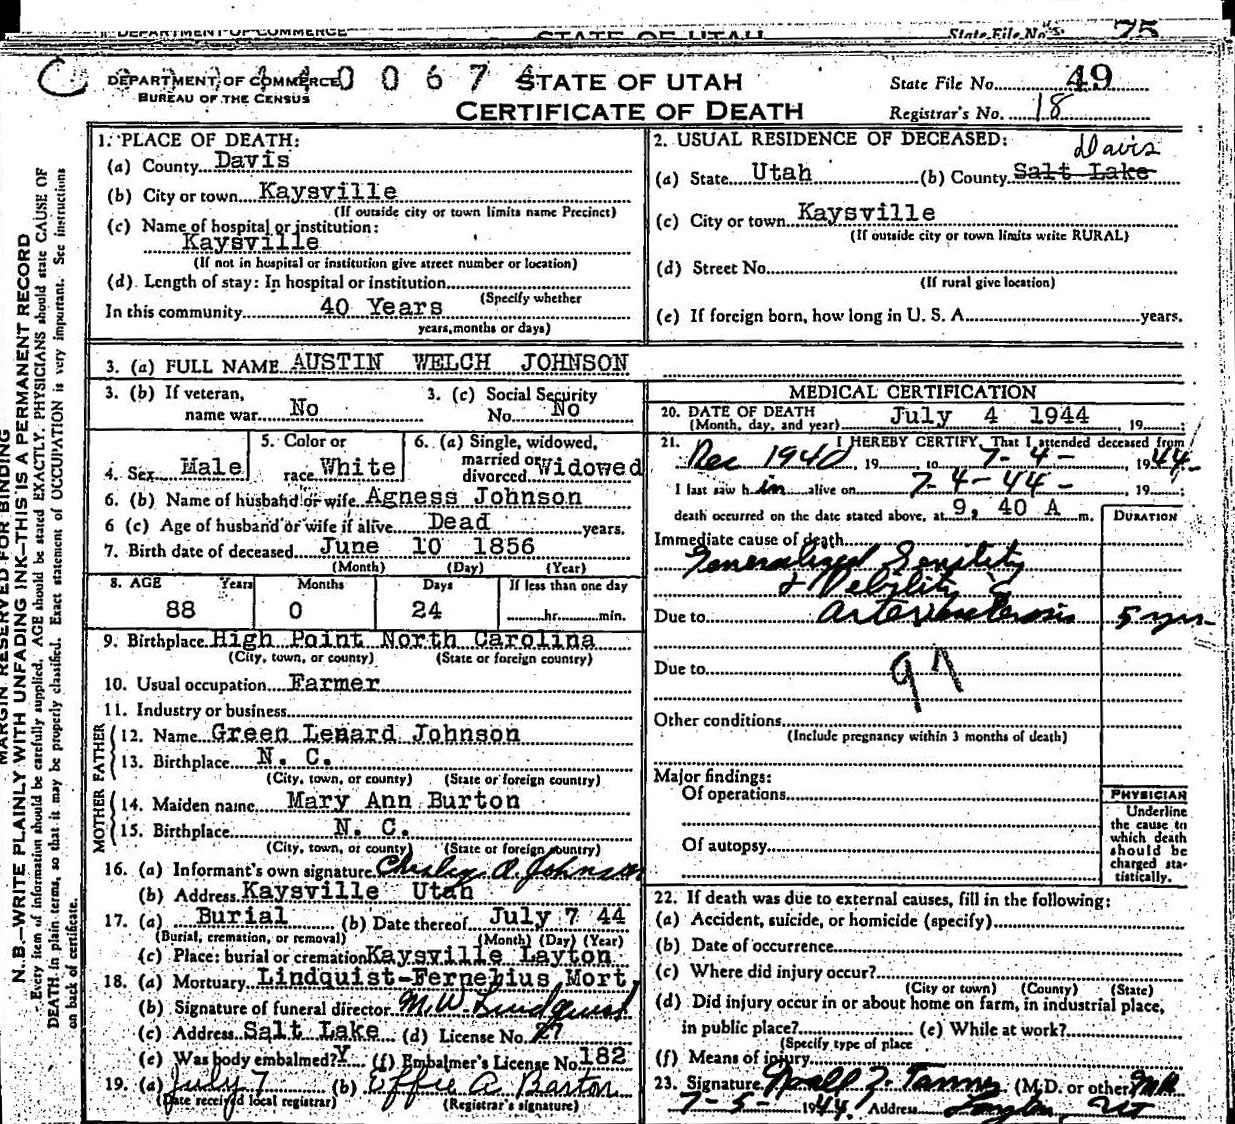 DEPARTMENT OF COMMERCE STATE OF UTAH State File No. 75
C DEPARTMENT OF COMMERCE 0 0 6 7 4 STATE OF UTAH State File No. 49
BUREAU OF THE CENSUS CERTIFICATE OF DEATH Registrar's No. 18
MARGIN RESERVED FOR BINDING
N. B.—WRITE PLAINLY WITH UNFADING INK—THIS IS A PERMANENT RECORD
Every item of information should be carefully supplied. AGE should be stated EXACTLY. PHYSICIANS should state CAUSE OF
DEATH in plain terms, so that it may be properly classified. Exact statement of OCCUPATION is very important. See instructions
on back of certificate.
1. PLACE OF DEATH:
(a) County Davis
(b) City or town Kaysville
(If outside city or town limits name Precinct)
(c) Name of hospital or institution:
Kaysville
(If not in hospital or institution give street number or location)
(d) Length of stay: In hospital or institution
(Specify whether
In this community 40 Years
years, months or days)
2. USUAL RESIDENCE OF DECEASED:
Davis
(a) State Utah (b) County Salt Lake
(c) City or town Kaysville
(If outside city or town limits write RURAL)
(d) Street No.
(If rural give location)
(e) If foreign born, how long in U. S. A. years.
3. (a) FULL NAME AUSTIN WELCH JOHNSON
3. (b) If veteran, 3. (c) Social Security
name war No No. No
4. Sex Male 5. Color or race White 6. (a) Single, widowed, married or divorced Widowed
6. (b) Name of husband or wife Agness Johnson
6 (c) Age of husband or wife if alive Dead years.
7. Birth date of deceased June 10 1856
(Month) (Day) (Year)
8. AGE Years Months Days If less than one day
88 0 24 hr. min.
9. Birthplace High Point North Carolina
(City, town, or county) (State or foreign country)
10. Usual occupation Farmer
11. Industry or business
FATHER
12. Name Green Lenard Johnson
13. Birthplace N. C.
(City, town, or county) (State or foreign country)
MOTHER
14. Maiden name Mary Ann Burton
15. Birthplace N. C.
(City, town, or county) (State or foreign country)
16. (a) Informant's own signature A. Johnson
(b) Address Kaysville Utah
17. (a) Burial (b) Date thereof July 7 44
(Burial, cremation, or removal) (Month) (Day) (Year)
(c) Place: burial or cremation Kaysville Layton
18. (a) Mortuary Lindquist-Fernelius Mort
(b) Signature of funeral director M. W. Lindquist
(c) Address Salt Lake (d) License No.
(e) Was body embalmed? Y (f) Embalmer's License No. 182
19. (a) July 7 (b) Effie A. Barton
(Date received local registrar) (Registrar's signature)
MEDICAL CERTIFICATION
20. DATE OF DEATH July 4 1944
(Month, day, and year) , 19 ;
21. I HEREBY CERTIFY, That I attended deceased from
Dec 1940, 19 to 7-4- 1944-
I last saw h im alive on 7-4-44-, 19 ;
death occurred on the date stated above, at 9, 40 A m. DURATION
Immediate cause of death
Generalized Senility
& Debility
Due to arteriosclerosis 5 yrs
Due to 97
Other conditions
(Include pregnancy within 3 months of death)
Major findings:
Of operations
Of autopsy
PHYSICIAN
Underline
the cause to
which death
should be
charged sta-
tistically.
22. If death was due to external causes, fill in the following:
(a) Accident, suicide, or homicide (specify)
(b) Date of occurrence
(c) Where did injury occur?
(City or town) (County) (State)
(d) Did injury occur in or about home on farm, in industrial place,
in public place? (e) While at work?
(Specify type of place
(f) Means of injury
23. Signature Z. Tanner (M.D. or other M.D.
7-5- 1944. Address Layton, UT